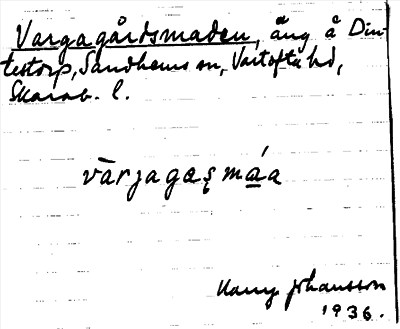 Vargagårdsmaden, äng å Din-
testorp, Sandhems sn, Vartofta hd,
Skarab. l.
vàrjagæșmáa
Harry Johansson
1936.